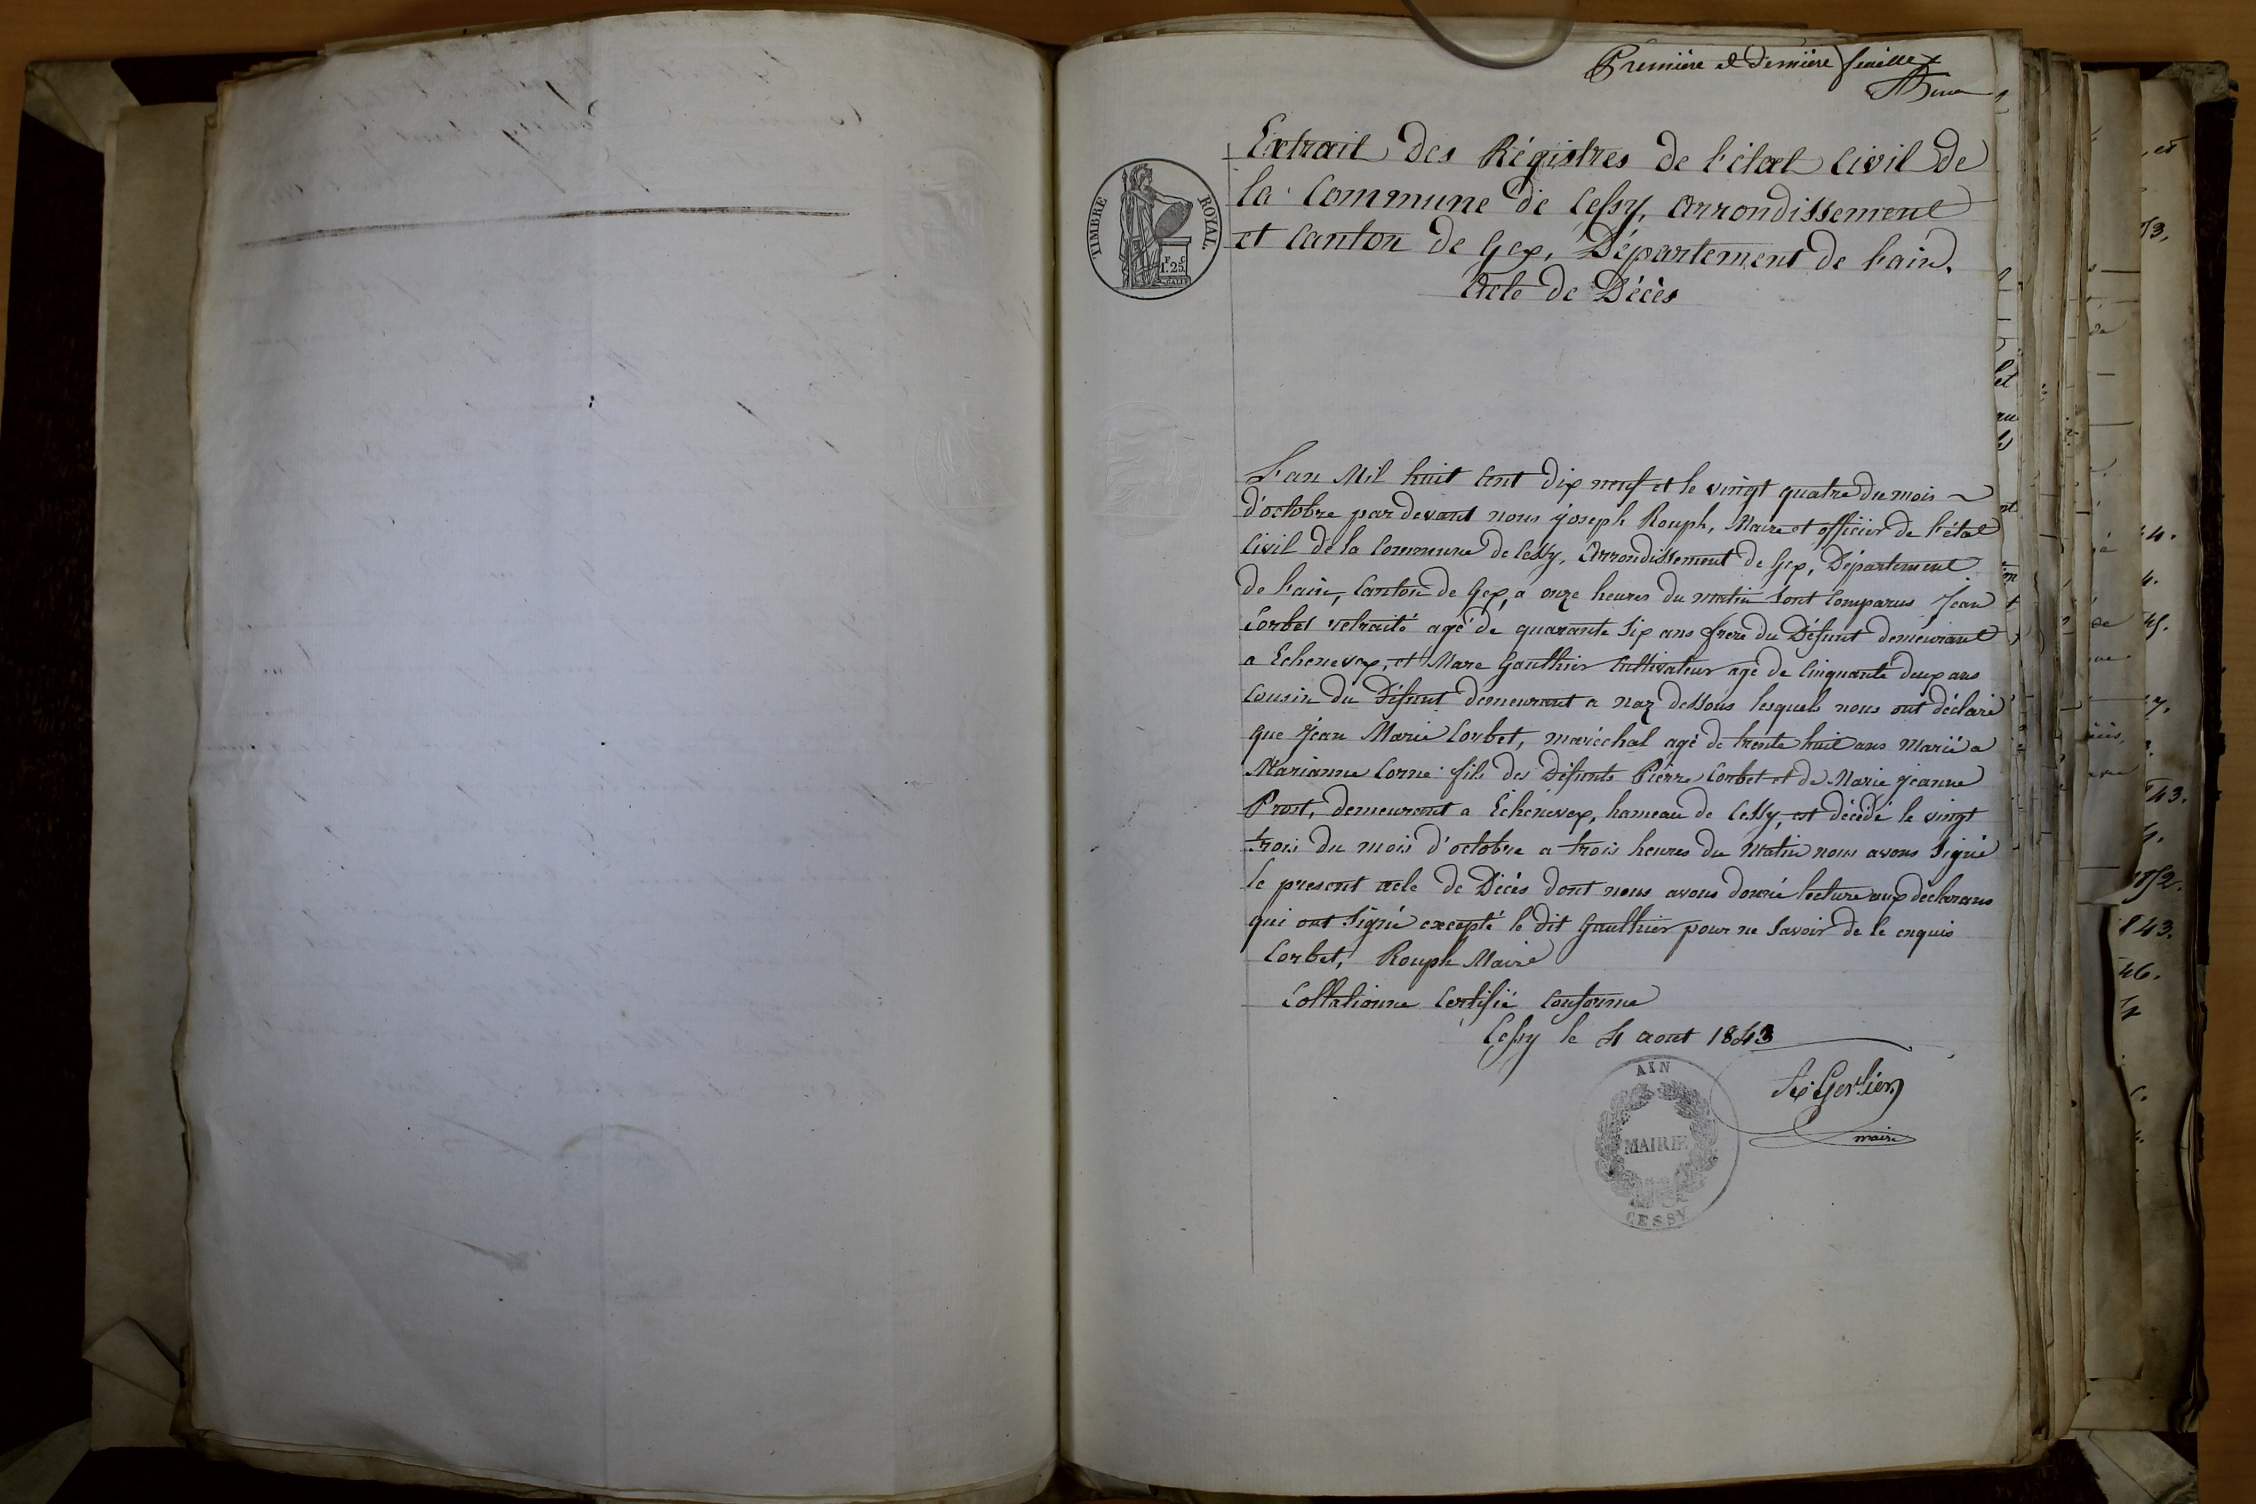 Première et Dernière feuille
Extrait des Régistres de l'état Civil de
la Commune de Cessy, Arrondissement
et Canton de Gex, Département de l'ain.
Acte de Décès
TIMBRE ROYAL
1.25
L'an Mil huit Cent Dix neuf et le vingt quatre du mois
d'octobre par devant nous joseph Rouph, Maire et officier de l'état
Civil de la Commune de Cessy, Arrondissement de Gex, Département
de l'ain, Canton de Gex, a onze heures du matin sont Comparus Jean
Corbet retraité agé de quarante six ans frere du Défunt demeurant
a Echenevex, et Marc Gauthier Cultivateur agé de Cinquante deux ans
Cousin du Défunt demeurant a naz dessous lesquels nous ont déclaré
que Jean Marie Corbet, maréchal agé de trente huit ans Marié a
Marianne Corne fils des Défunts Pierre Corbet et de Marie jeanne
Prost, demeurant a Echénevex, hameau de Cessy, est décédé le vingt
trois du mois d'octobre a trois heures du Matin nous avons signé
le present acte de Décès dont nous avons donné lecture aux déclarans
qui ont signé excepté le dit Gaulthier pour ne savoir de le enquis
Corbet, Rouph Maire
Collationne Certifié Conforme
Cessy le 4 aout 1843
Gerlier
maire
AIN
MAIRIE
CESSY